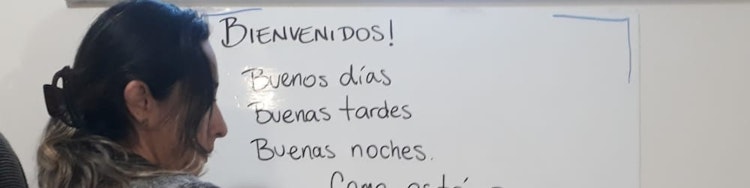 BIENVENIDOS!
Buenos días
Buenas tardes
Buenas noches.
Como